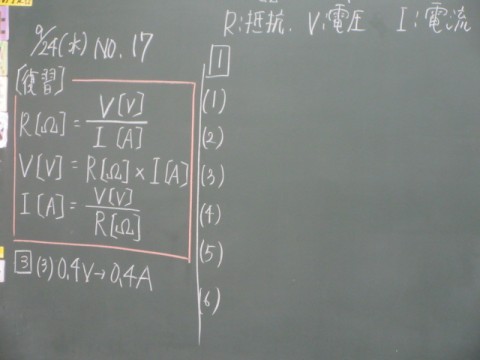 9/24(木) NO. 17
[復習]
R[Ω] = V[V] / I[A]
V[V] = R[Ω] × I[A]
I[A] = V[V] / R[Ω]
3 (3) 0.4V→0.4A
R:抵抗. V:電圧 I:電流
1
(1)
(2)
(3)
(4)
(5)
(6)